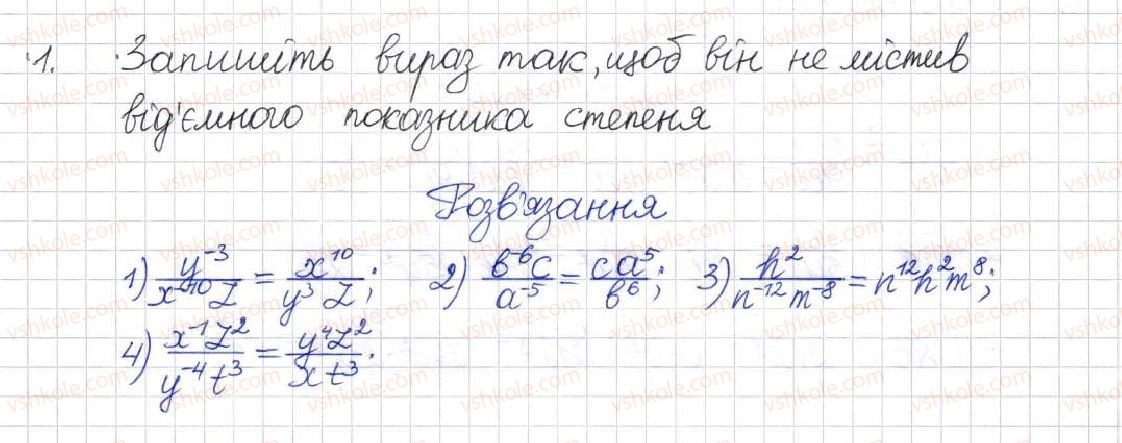 1. Запишіть вираз так, щоб він не містив
від'ємного показника степеня
Розв'язання
1) y⁻³/x⁻¹⁰z = x¹⁰/y³z; 2) b⁻⁶c/a⁻⁵ = ca⁵/b⁶; 3) h²/n⁻¹²m⁻⁸ = n¹²h²m⁸;
4) x⁻¹z²/y⁻⁴t³ = y⁴z²/xt³.
vshkole.com